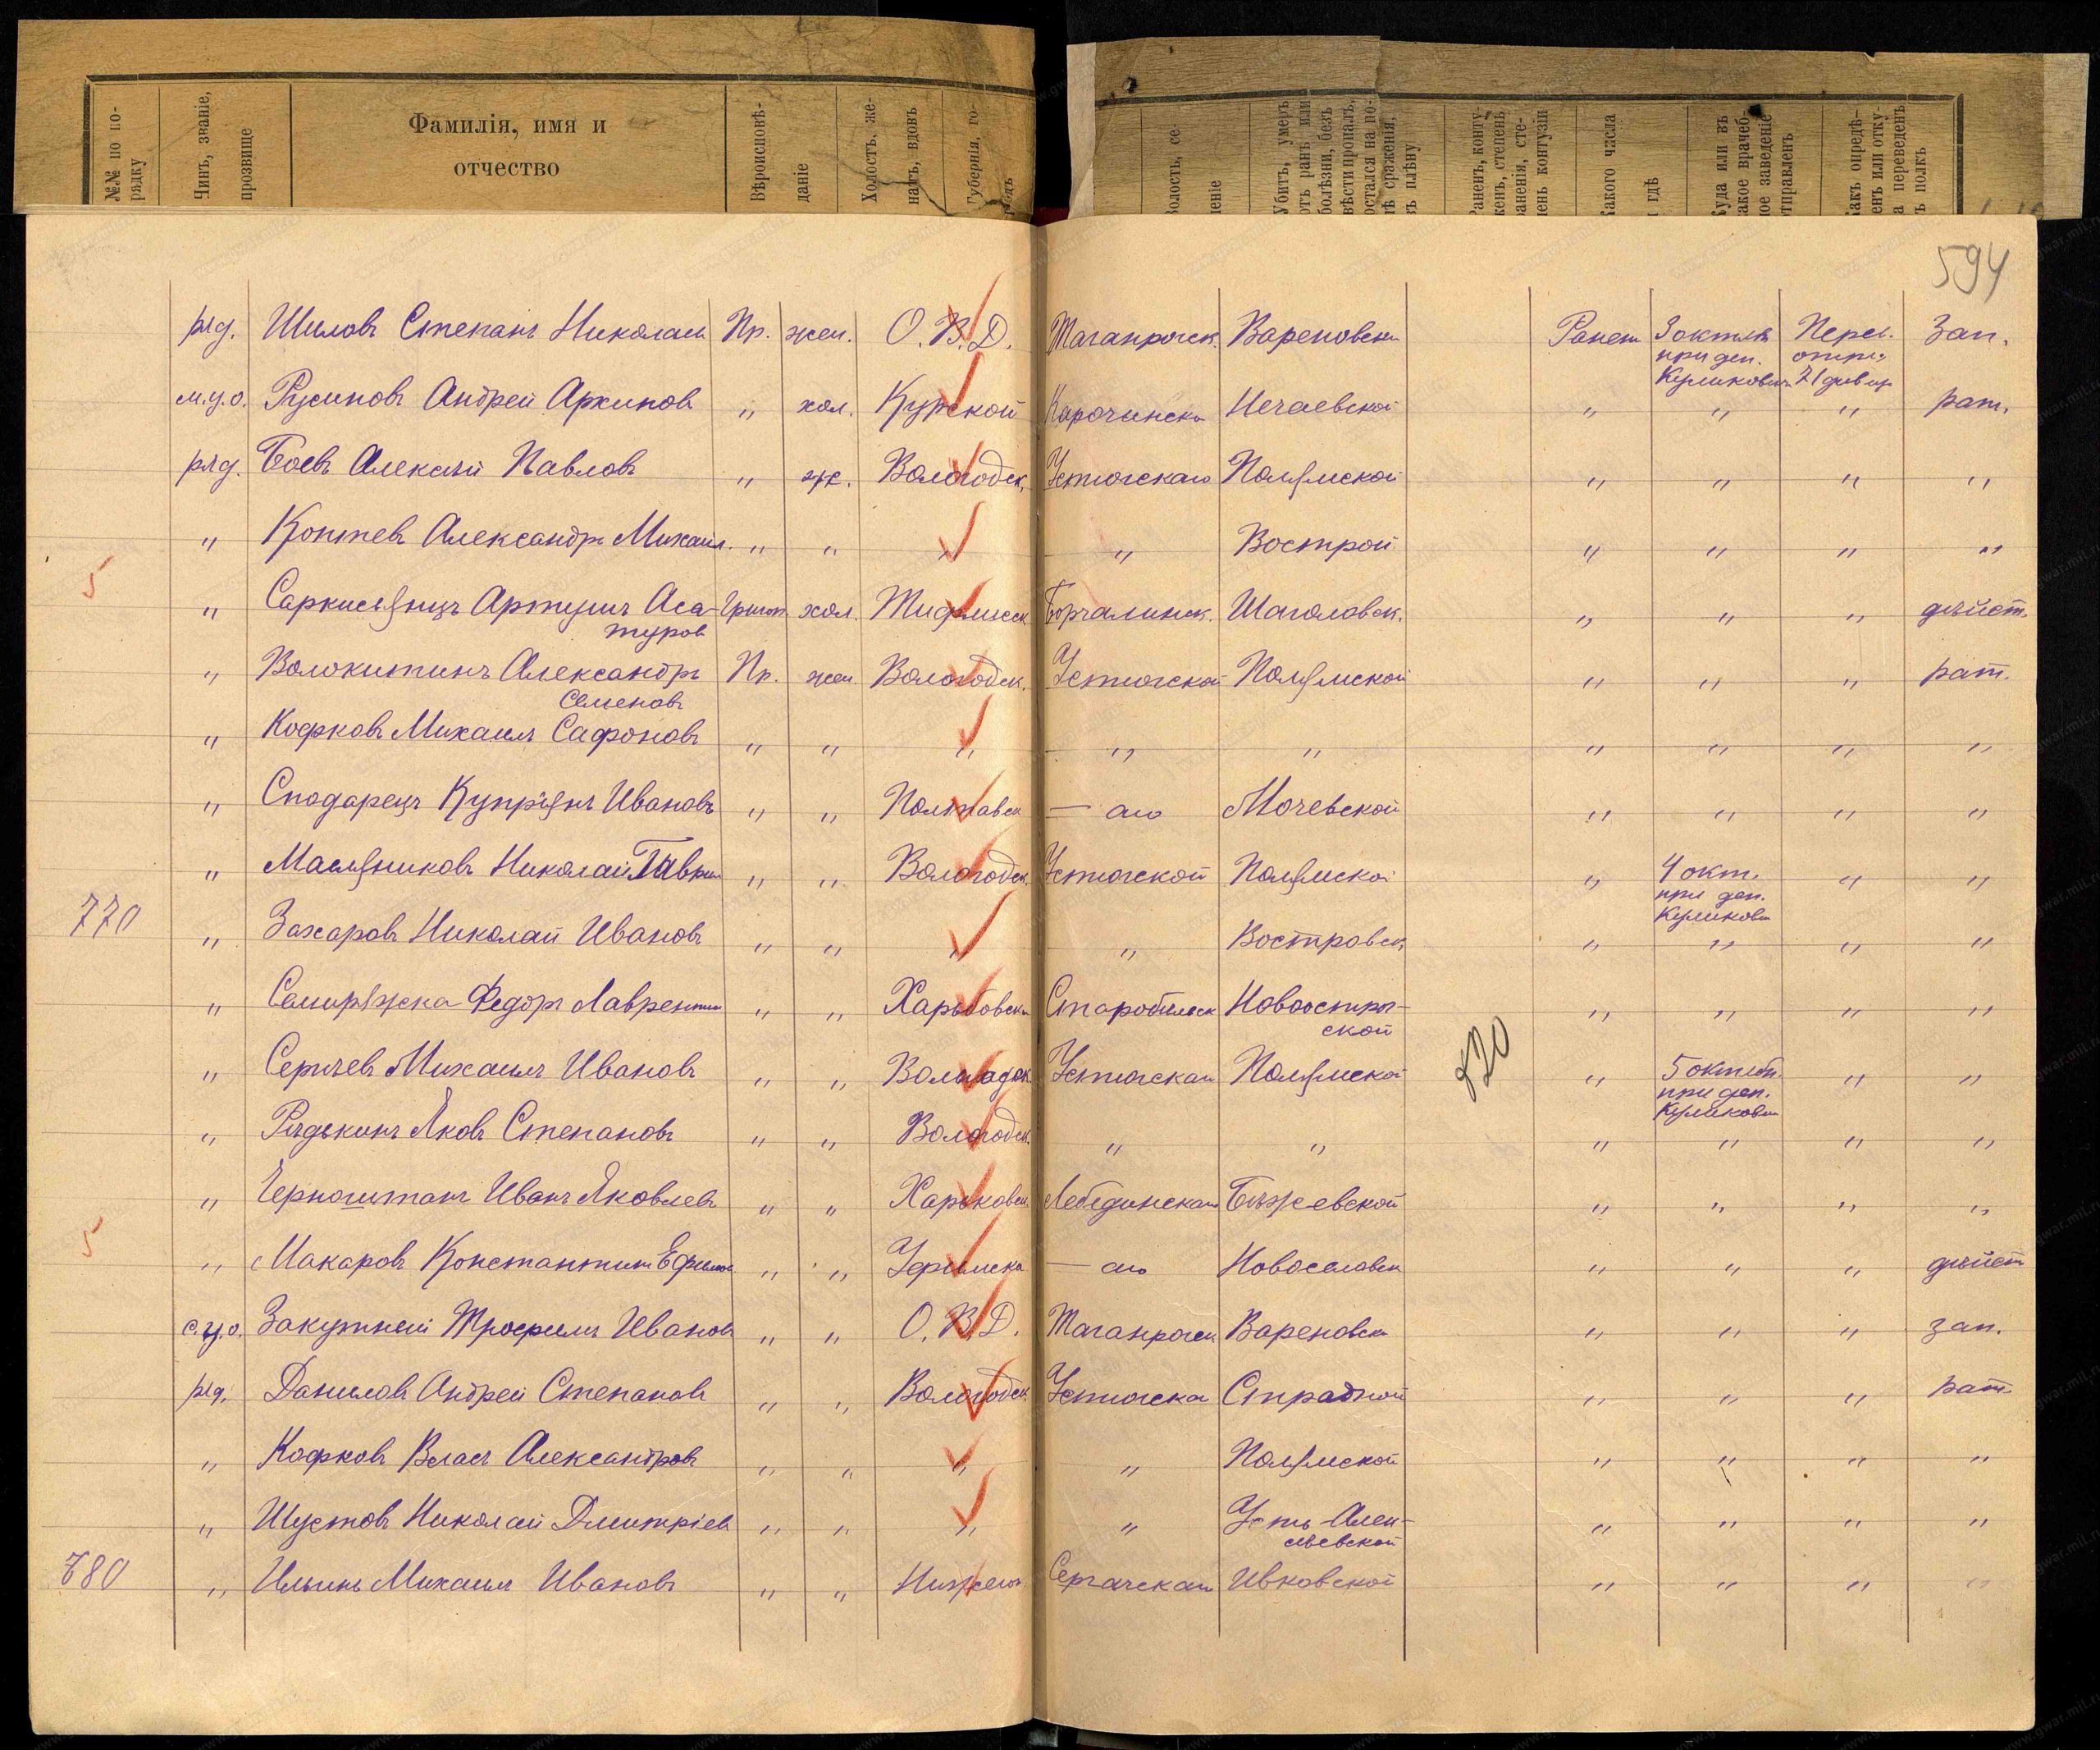 №№ по по-
рядку
Чинъ, званіе,
прозвище
Фамилія, имя и
отчество
Вѣроисповѣ-
даніе
Холостъ, же-
натъ, вдовъ
Губернія, го-
родъ
Волость, се-
леніе
Убитъ, умеръ
отъ ранъ или
болѣзни, безъ
вѣсти пропалъ,
остался на по-
лѣ сраженія,
въ плѣну
Раненъ, конту-
женъ, степень
раненія, сте-
пень контузіи
Какого числа
и гдѣ
Куда или въ
какое врачеб-
ное заведеніе
отправленъ
594
ряд. Шиловъ Степанъ Николаев Пр. жен. О.В.Д. Таганрогск. Вареновской Ранен 3 октября Перев. Зап.
при дер. отря.
Куликовичи 71 див
м.у.о. Русиновъ Андрей Архиповъ " хол. Курской Карочинска Нечаевской " " " рат.
ряд. Боевъ Алексѣй Павловъ " ж. Вологодск. Устюгскаго Палемской " " " "
" Коптевъ Александръ Михаил. " " " " Вострой " " " "
5
" Саркисьянцъ Артушъ Аса- Григор. хол. Тифлисск. Борчалинск. Шагаловск. " " " дѣйст.
туров
" Волокитинъ Александръ Пр. жен. Вологодск. Устюгской Палемской " " " рат.
Семеновъ
" Кофковъ Михаилъ Сафоновъ " " " " " " " " "
" Сподарецъ Купріянъ Ивановъ " " Полтавск — аго Мачевской " " " "
" Масляниковъ Николай Гаврил " " Вологодск. Устюгской Палемской " 4 окт. " "
при дер.
Куликови
770
" Захаровъ Николай Ивановъ " " " " Востровск. " " " "
" Семиряжка Федоръ Лаврентьев " " Харьковск. Старобѣльск Новоостро-
ской " " " "
820
" Сергѣевъ Михаилъ Ивановъ " " Вологодск. Устюгскаго Палемской " 5 октяб. " "
при дер.
Куликови
" Рѣдькинъ Яковъ Степановъ " " Вологодск. " " " " " "
" Черноштанъ Иванъ Яковлевъ " " Харьковск. Лебединскаго Бѣжевской " " " "
5
" Макаровъ Константинъ Ефимов " " Уфимска — аго Новоселовск " " " дѣйст
с.у.о. Закутній Трофимъ Ивановъ " " О.В.Д. Таганрогск Вареновск " " " зап.
ряд. Даниловъ Андрей Степановъ " " Вологодск. Устюгска Страдной " " " рат.
" Кофковъ Власъ Александровъ " " " " Палемской " " " "
" Шустовъ Николай Дмитріевъ " " " " Усть-Алек-
сѣевской " " " "
780
" Ильинъ Михаилъ Ивановъ " " Нижегор. Сергачскаго Ивковской " " " "